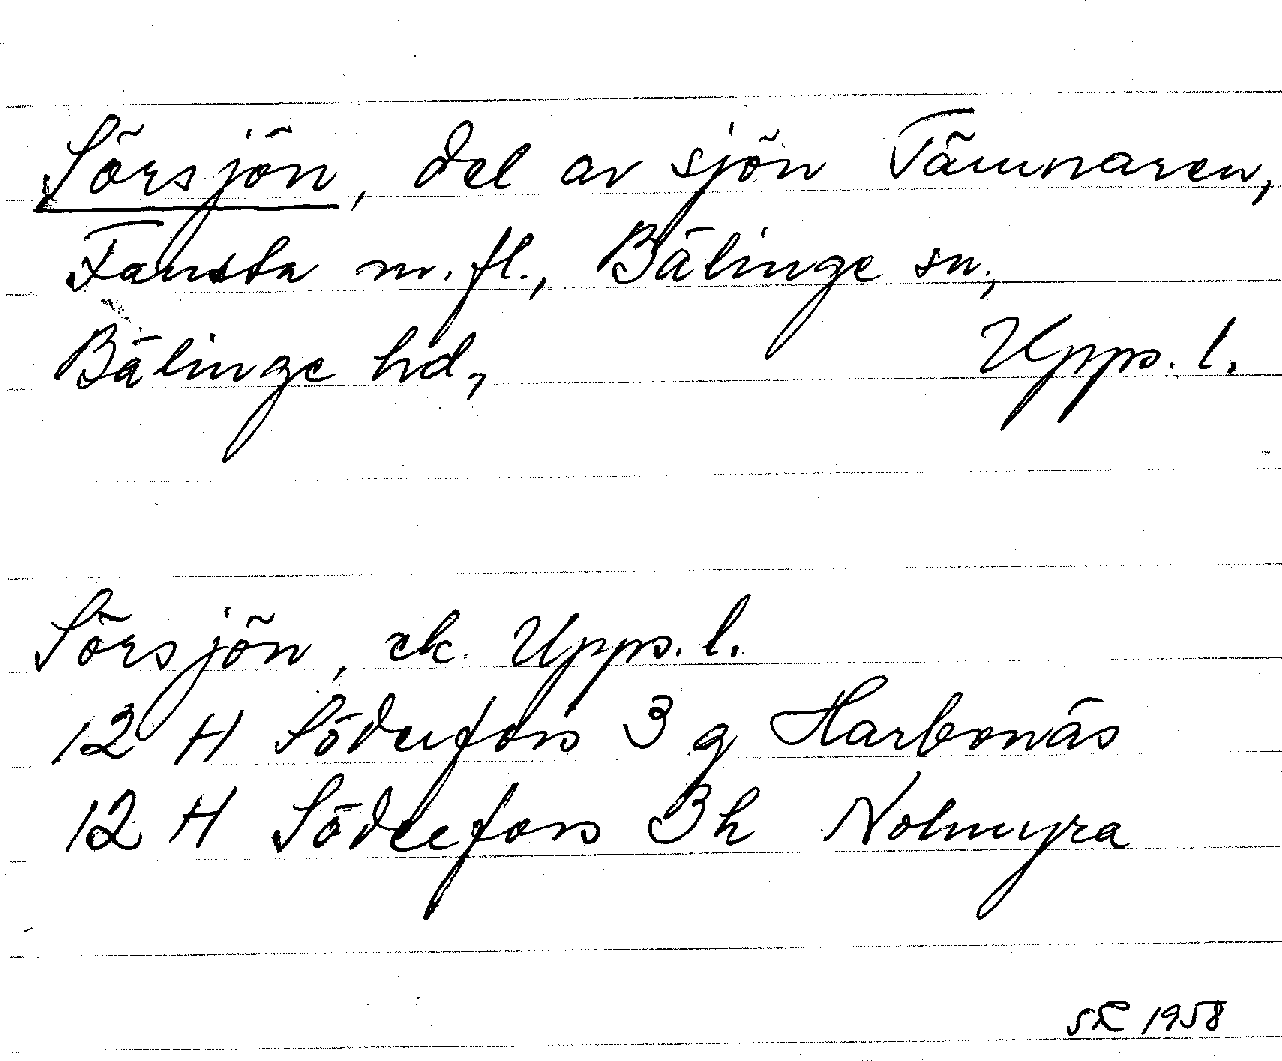 Sörsjön, del av sjön Tämnaren,
Fansta m.fl., Bälinge sn.,
Bälinge hd, Upps. l.
Sörsjön, ek. Upps. l.
12 H Söderfors 3 g Harbonäs
12 H Söderfors 3 h Nolmyra
1958